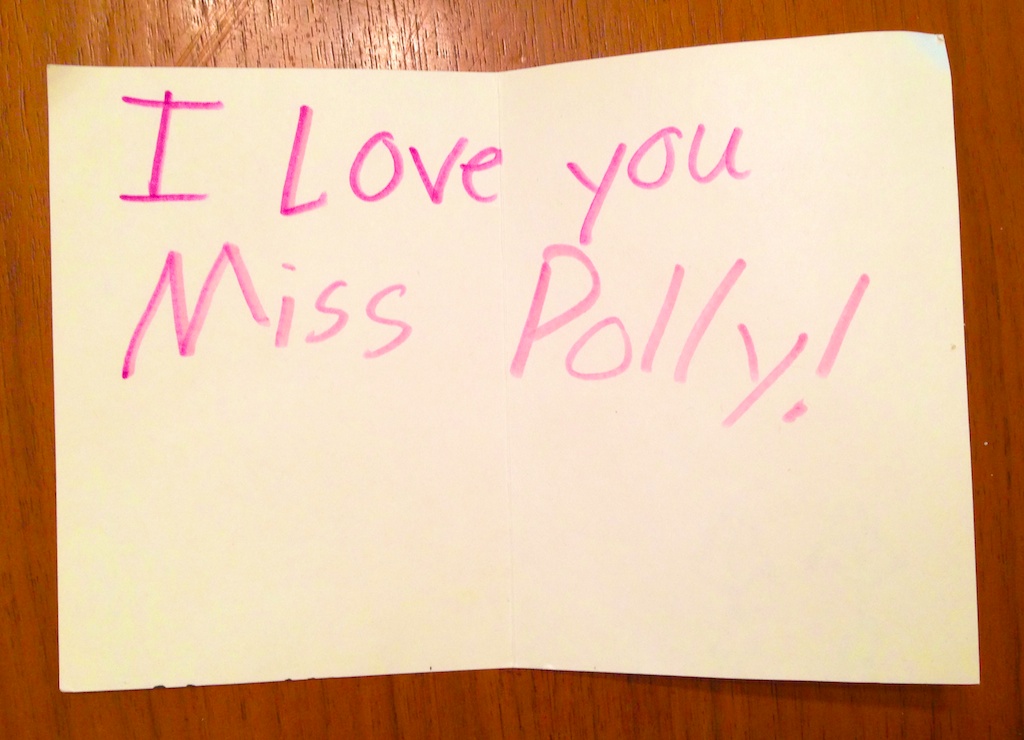 I Love you
Miss Polly!